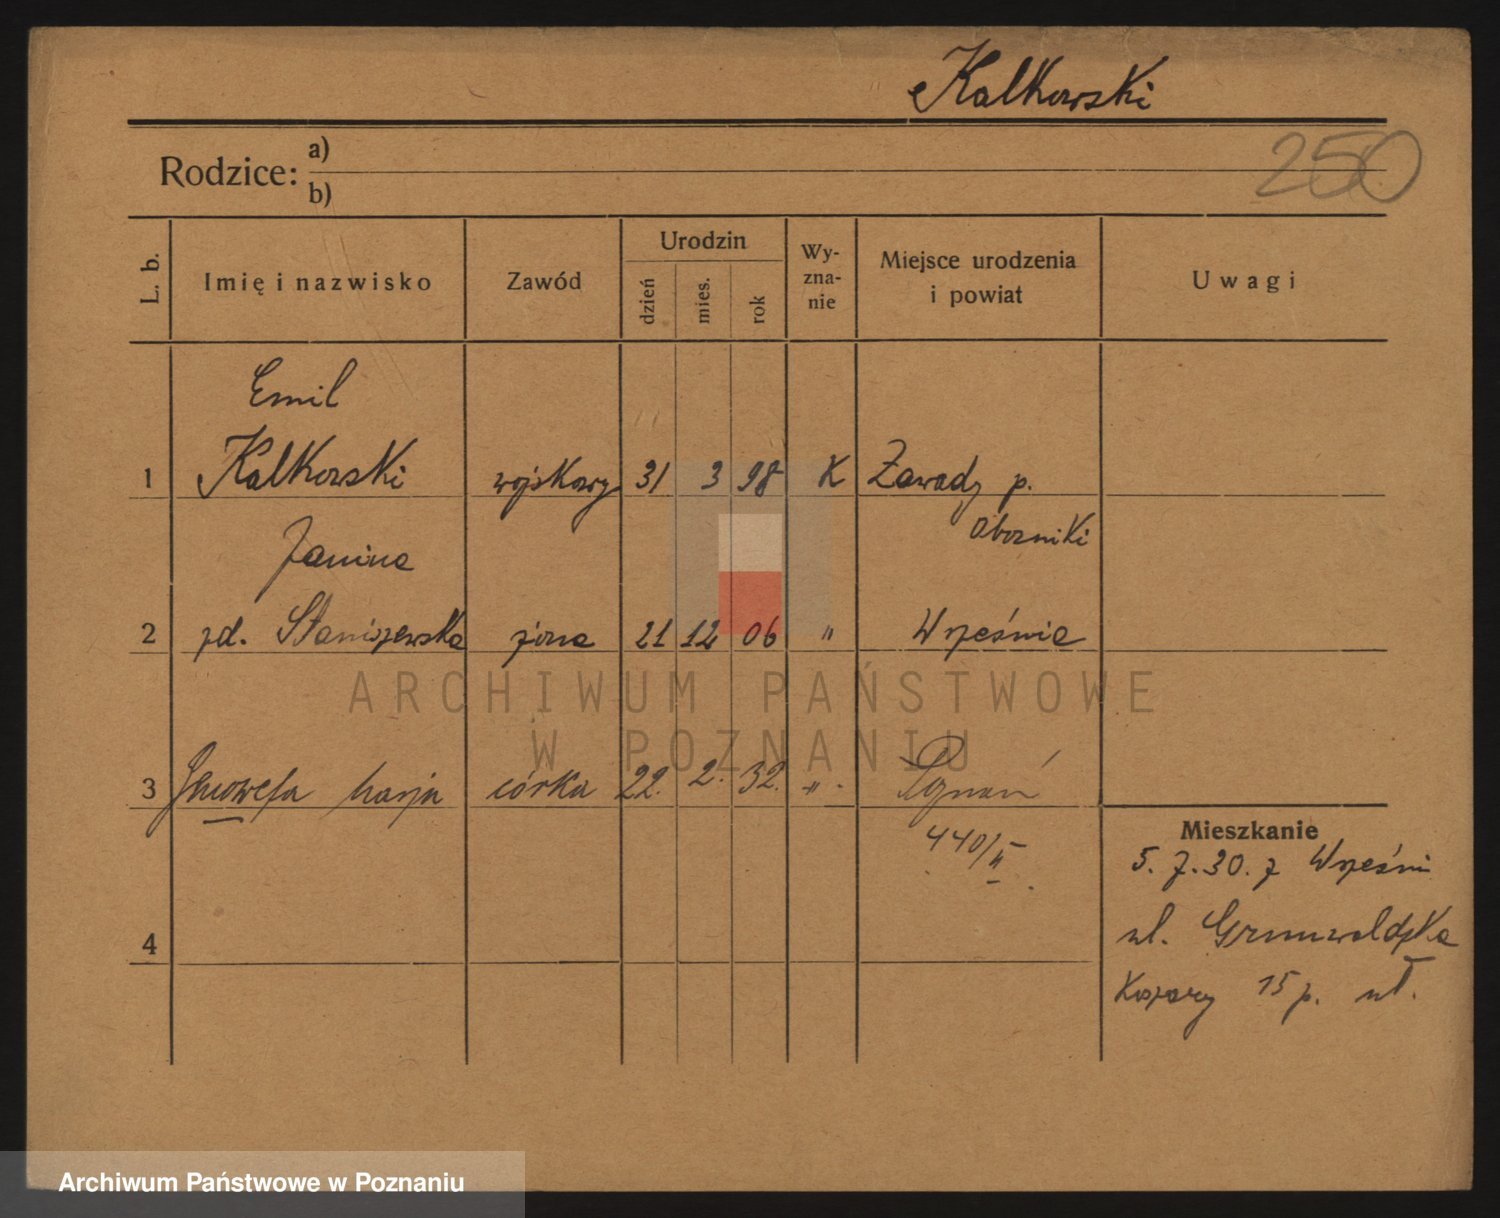 Kalkowski
250
Rodzice: a)
b)
L. b.
Imię i nazwisko
Zawód
Urodzin
dzień
mies.
rok
Wy-
zna-
nie
Miejsce urodzenia
i powiat
Uwagi
Emil
1 Kalkowski wojskowy 31 3 98 K Zawady p.
Oborniki
Janina
2 zd. Staniszewska żona 21 12 06 " Września
3 Genowefa Marja córka 22. 2. 32. " Poznań
440/II
Mieszkanie
5. 7. 30. z Wrześni
ul. Grunwaldzka
Koszary 15 p. uł.
4
ARCHIWUM PAŃSTWOWE
W POZNANIU
Archiwum Państwowe w Poznaniu